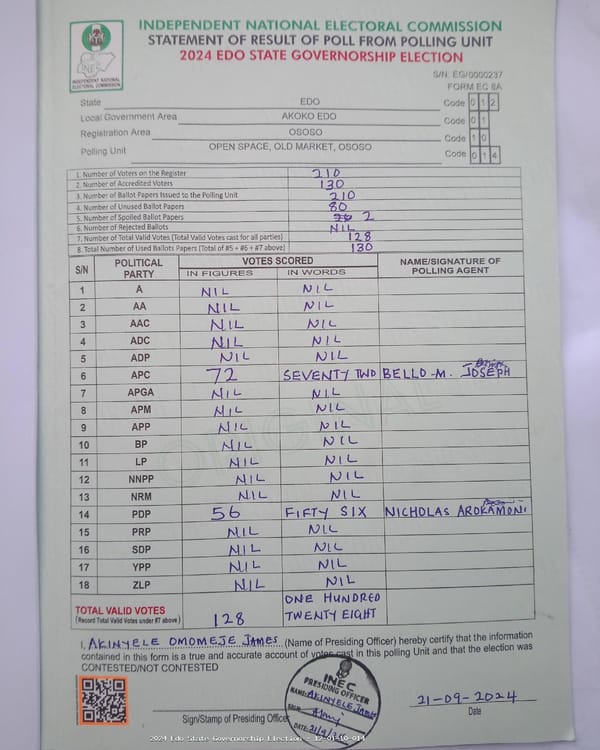 INDEPENDENT NATIONAL ELECTORAL COMMISSION
STATEMENT OF RESULT OF POLL FROM POLLING UNIT
2024 EDO STATE GOVERNORSHIP ELECTION
INEC
INDEPENDENT NATIONAL
ELECTORAL COMMISSION
S/N. EG/0000237
FORM EC 8A
State EDO Code 0 1 2
Local Government Area AKOKO EDO Code 0 1
Registration Area OSOSO Code 1 0
Polling Unit OPEN SPACE, OLD MARKET, OSOSO Code 0 1 4
1. Number of Voters on the Register 210
2. Number of Accredited Voters 130
3. Number of Ballot Papers Issued to the Polling Unit 210
4. Number of Unused Ballot Papers 80
5. Number of Spoiled Ballot Papers 2
6. Number of Rejected Ballots NIL
7. Number of Total Valid Votes (Total Valid Votes cast for all parties) 128
8. Total Number of Used Ballots Papers (Total of #5 + #6 + #7 above) 130
S/N POLITICAL PARTY VOTES SCORED NAME/SIGNATURE OF POLLING AGENT
IN FIGURES IN WORDS
1 A NIL NIL
2 AA NIL NIL
3 AAC NIL NIL
4 ADC NIL NIL
5 ADP NIL NIL
6 APC 72 SEVENTY TWO BELLO M. JOSEPH
7 APGA NIL NIL
8 APM NIL NIL
9 APP NIL NIL
10 BP NIL NIL
11 LP NIL NIL
12 NNPP NIL NIL
13 NRM NIL NIL
14 PDP 56 FIFTY SIX NICHOLAS AROKAMONI
15 PRP NIL NIL
16 SDP NIL NIL
17 YPP NIL NIL
18 ZLP NIL NIL
TOTAL VALID VOTES
(Record Total Valid Votes under #7 above) 128 ONE HUNDRED TWENTY EIGHT
ORIGINAL
I, AKINYELE OMOMEJE JAMES (Name of Presiding Officer) hereby certify that the information
contained in this form is a true and accurate account of votes cast in this polling Unit and that the election was
CONTESTED/NOT CONTESTED
INEC
PRESIDING OFFICER
NAME: AKINYELE JAMES
SIGN:
DATE: 21/9/
Sign/Stamp of Presiding Officer
21-09-2024
Date
2024 Edo State Governorship Election - 12-01-10-014